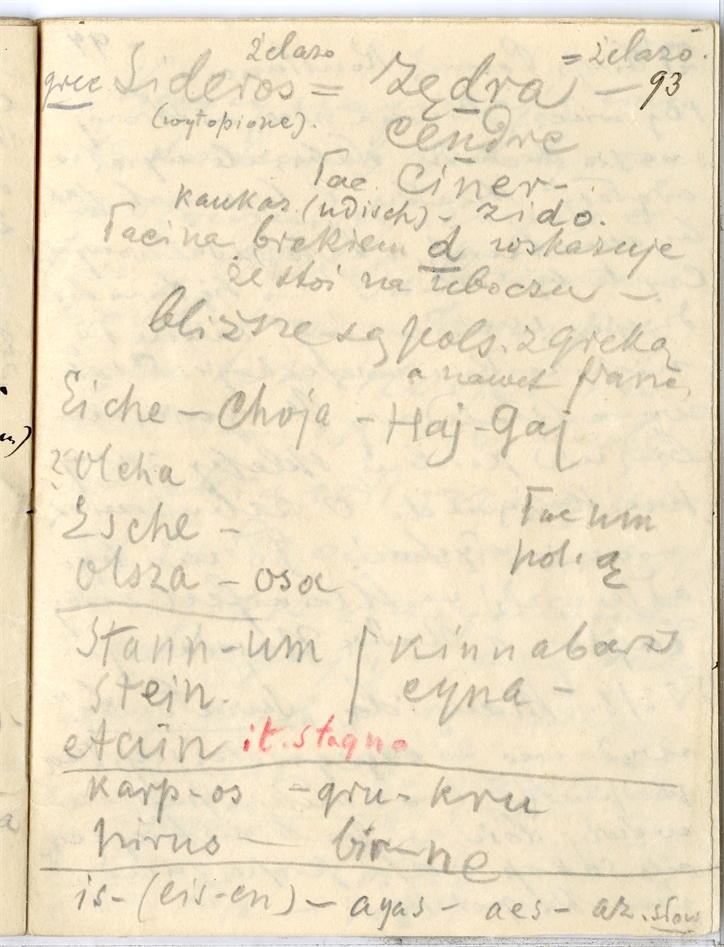 żelazo = żelazo.
grec Sideros = zędra — 93
(wytopione). cendre
łac. ciner-
kaukaz. (udisch) - zido.
łacina brakiem d wskazuje
że stoi na uboczu —
bliższe są pols. z greką
a nawet franc.
Eiche — Choja — Haj - Gaj
? Olcha
Esche —
łac um
Olsza — osa
pol. ą
Stann-um / kinnabarz
Stein. cyna —
etain it. stagno
karp-os = gru - kru
pirus — bir-ne
is- (eis-en) — ayas — aes — az. słow